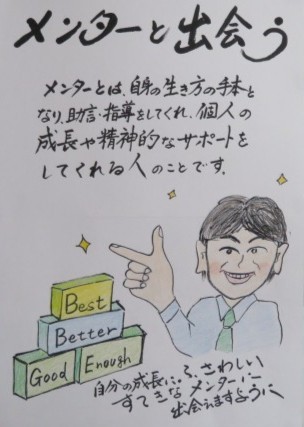 メンターと出会う
メンターとは、自身の生き方の手本と
なり、助言・指導をしてくれ、個人の
成長や精神的なサポートを
してくれる人のことです。
Best
Better
Good Enough
自分の成長に、ふさわしい
すてきなメンターに
出会えますように